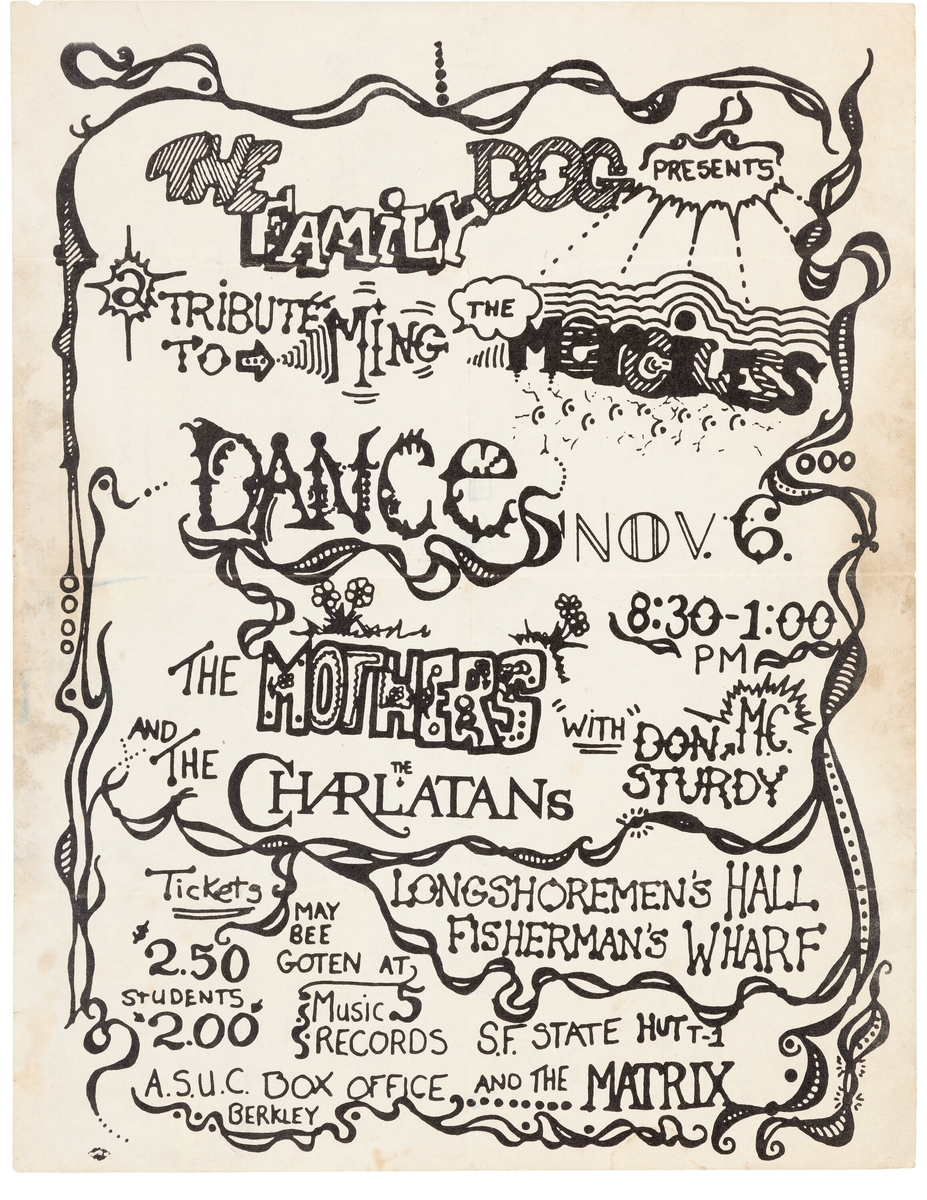 THE FAMILY DOG PRESENTS
a TRIBUTE TO MING THE MERCILESS
DANCE NOV. 6.
8:30-1:00 PM
THE MOTHERS
"WITH" M.C. DON STURDY
AND THE CHARLATANS
THE
LONGSHOREMEN'S HALL
FISHERMAN'S WHARF
Tickets
$2.50
STUDENTS
$2.00
MAY
BEE
GOTEN AT
Music 5
RECORDS
S.F. STATE HUT T-1
A.S.U.C. BOX OFFICE
BERKLEY
AND THE MATRIX